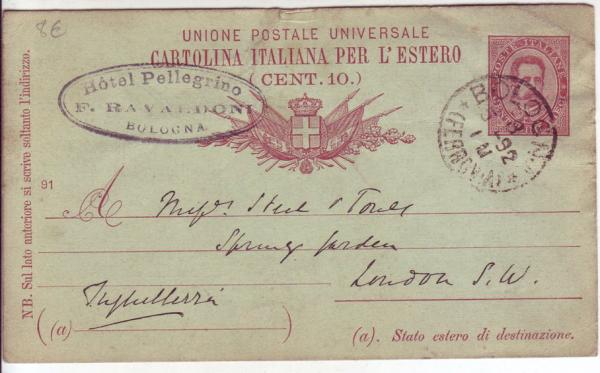 8€
UNIONE POSTALE UNIVERSALE
CARTOLINA ITALIANA PER L'ESTERO
(CENT. 10.)
POSTE ITALIANE
Hôtel Pellegrino
F. RAVALDONI
BOLOGNA
BOLOGNA
92
(FERROVIA)
91
NB. Sul lato anteriore si scrive soltanto l'indirizzo.
A Messrs Steel & Jones
Spring Garden
London S.W.
Inghilterra
(a)
(a). Stato estero di destinazione.